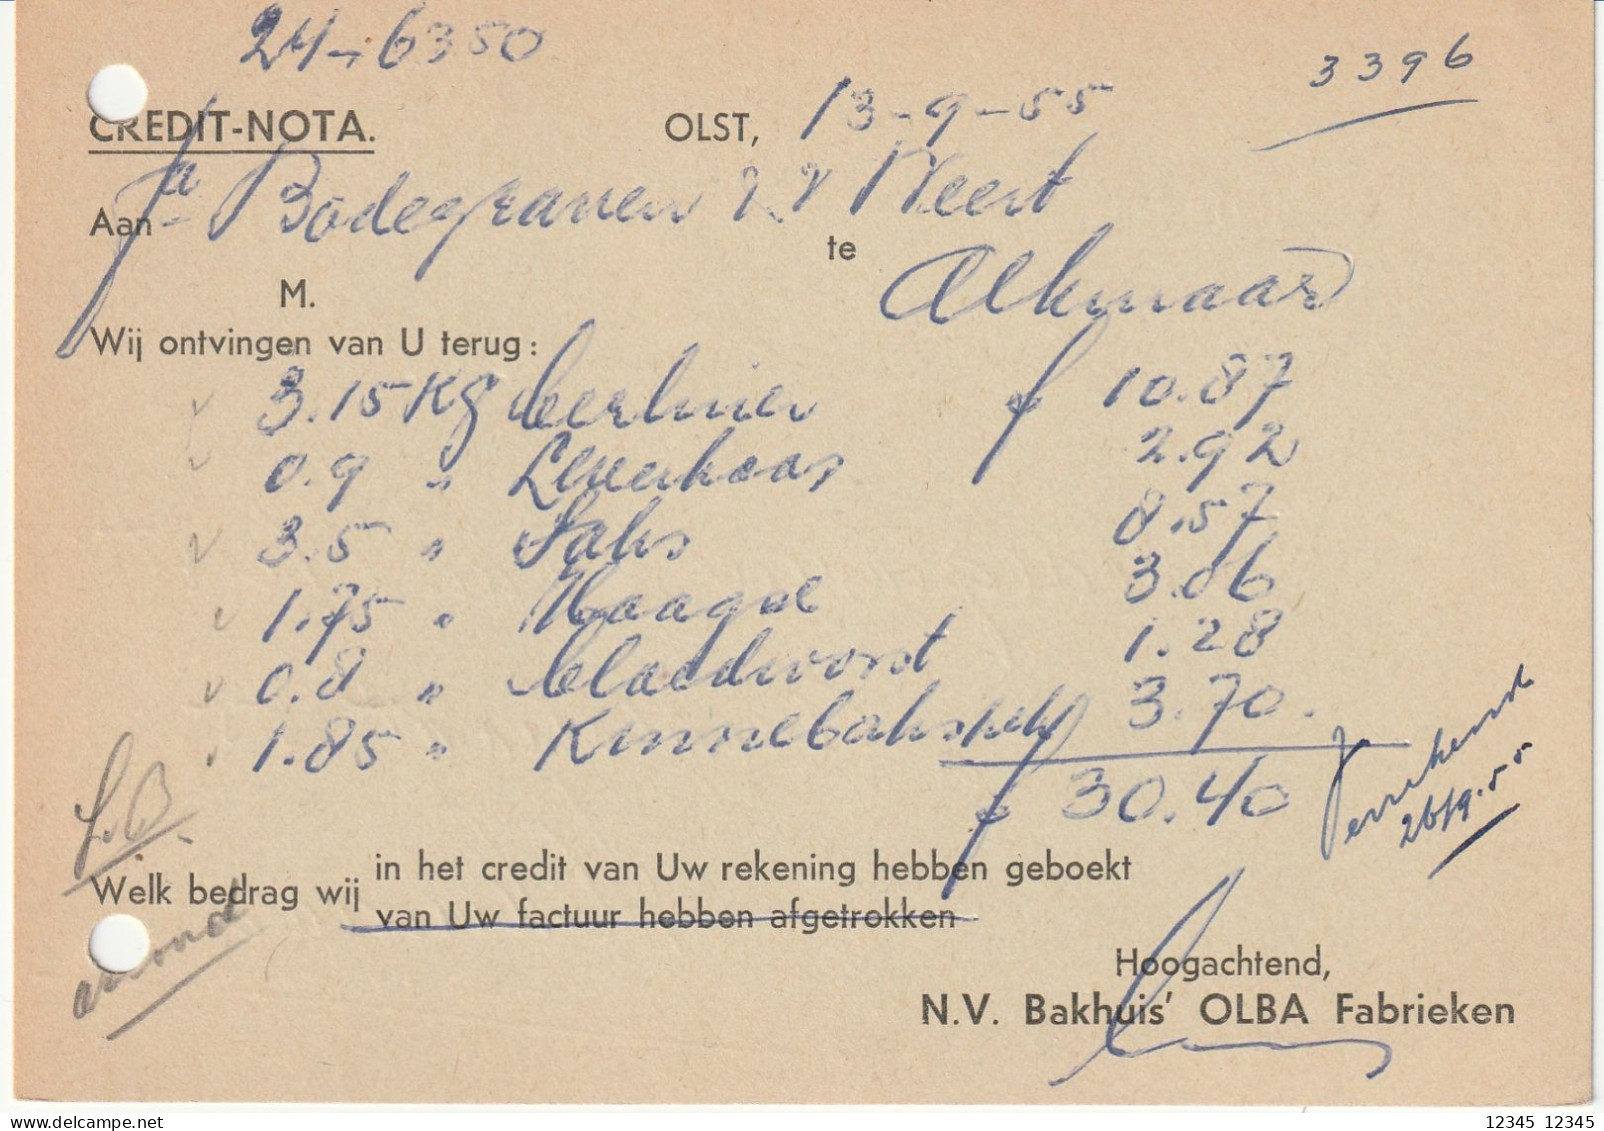 24-6350
3396
CREDIT-NOTA. OLST, 13-9-55
Aan Fa Bodegraven & v Weert
te Alkmaar
M.
Wij ontvingen van U terug:
3.15 KG berliner f 10.87
0.9 " Leverkaas 2.92
3.5 " Saks 8.57
1.75 " Haagse 3.06
0.8 " bloedworst 1.28
1.85 " Kinnebakspek 3.70.
f 30.40
Verrekend
26/9.55
L.B.
Welk bedrag wij in het credit van Uw rekening hebben geboekt
van Uw factuur hebben afgetrokken
accoord
Hoogachtend,
N.V. Bakhuis' OLBA Fabrieken
12345 12345